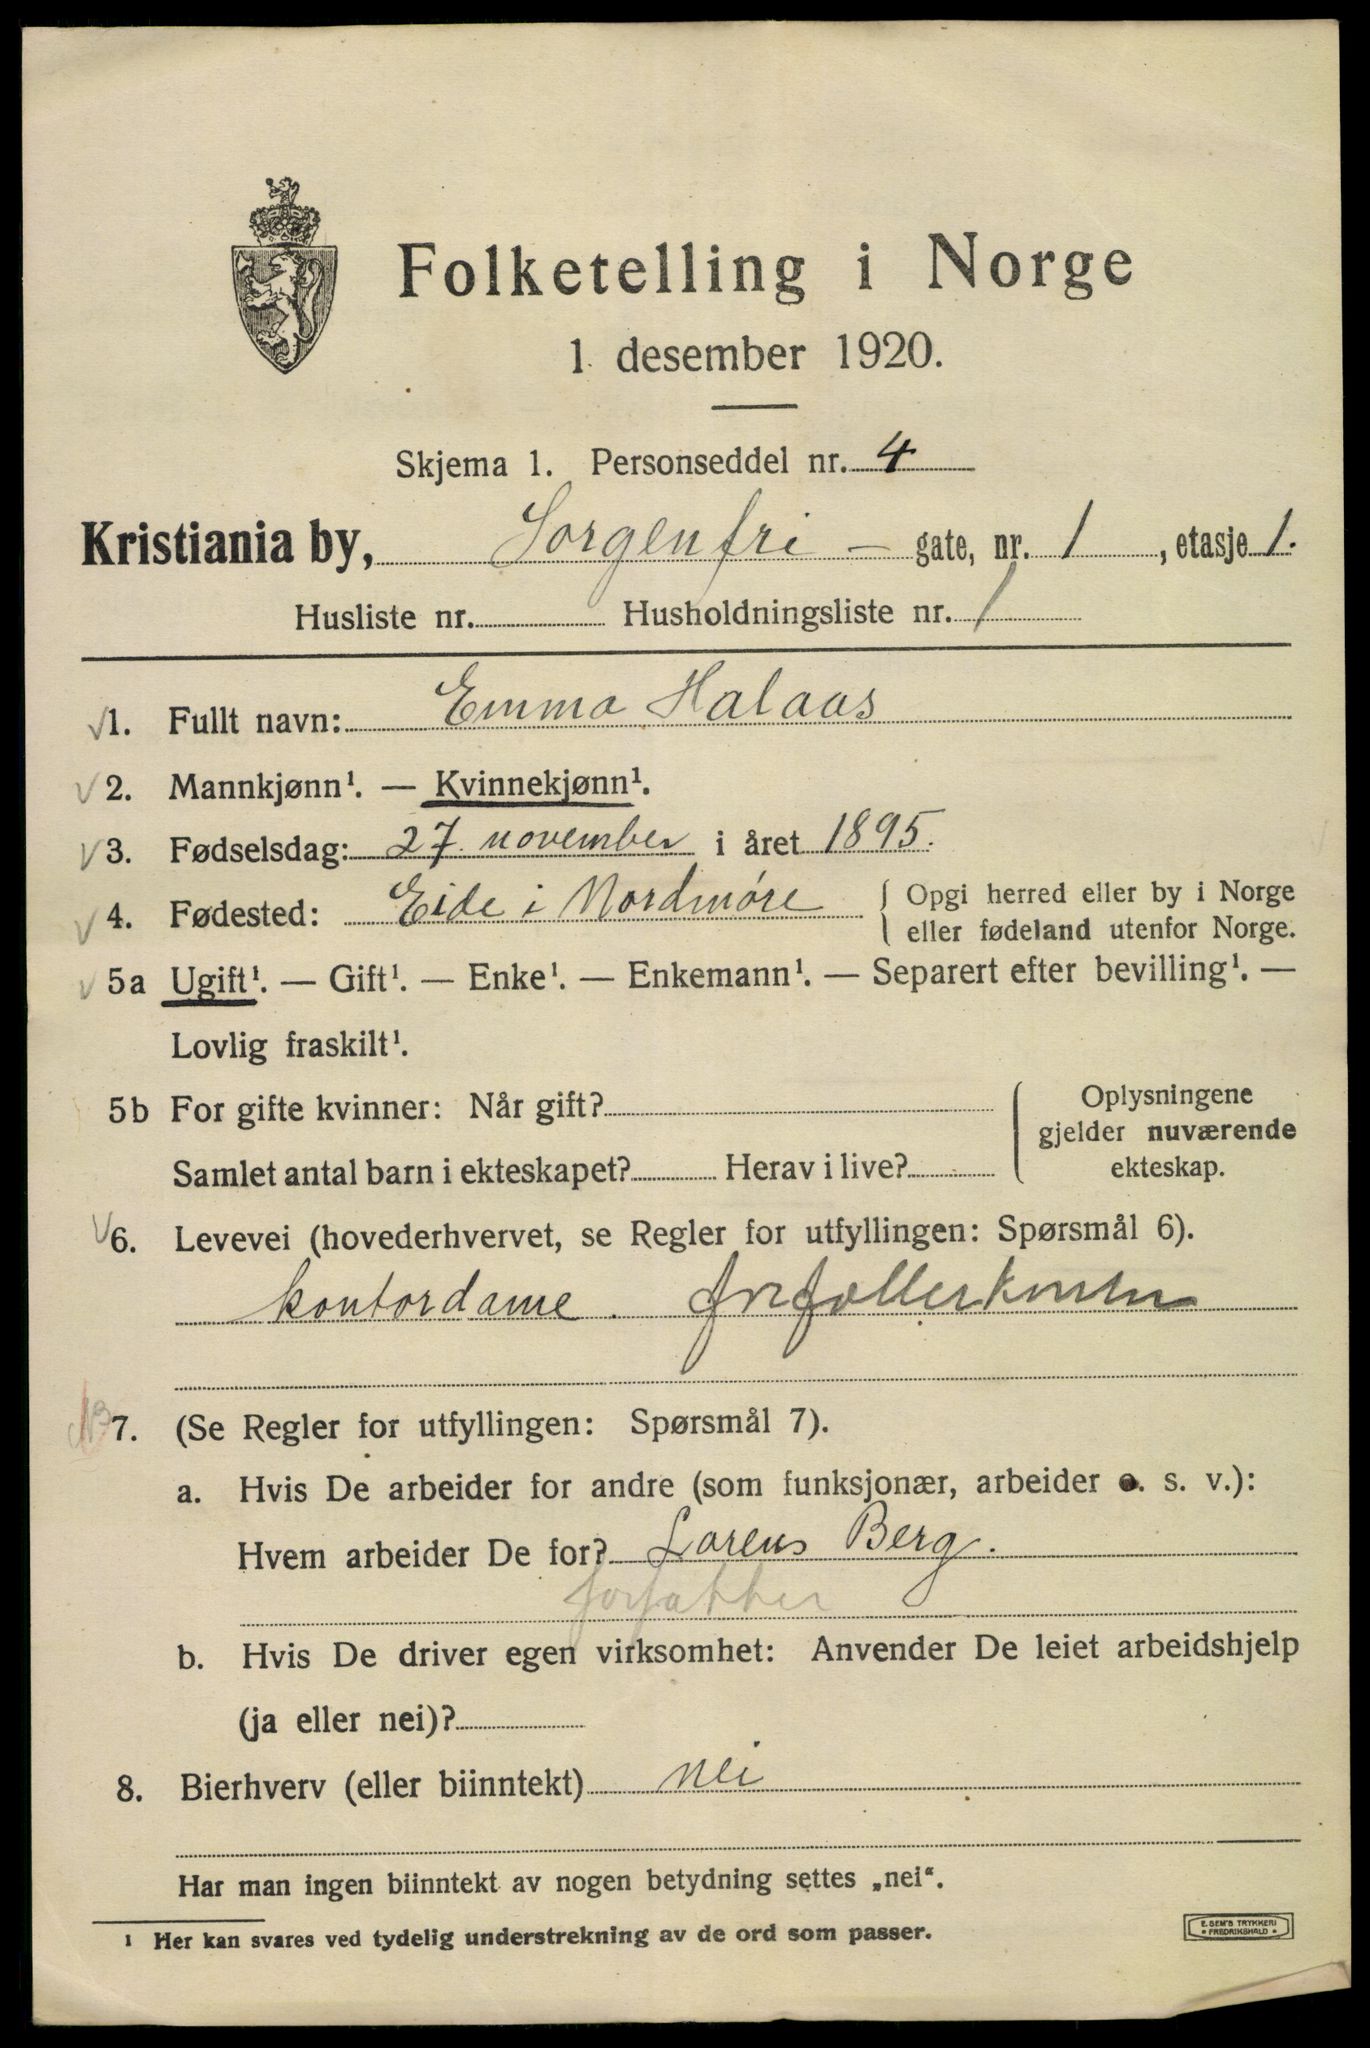 Folketelling i Norge
1. desember 1920.
Skjema 1. Personseddel nr. 4
Kristiania by, Sorgenfri - gate, nr. 1, etasje 1.
Husliste nr. Husholdningsliste nr. 1
1. Fullt navn: Emma Halaas
2. Mannkjønn¹. — Kvinnekjønn¹.
3. Fødselsdag: 27. november i året 1895.
4. Fødested: Eide i Nordmøre { Opgi herred eller by i Norge
eller fødeland utenfor Norge.
5a Ugift¹. — Gift¹. — Enke¹. — Enkemann¹. — Separert efter bevilling¹. —
Lovlig fraskilt¹.
5b For gifte kvinner: Når gift?
Samlet antal barn i ekteskapet? Herav i live?
Oplysningene
gjelder nuværende
ekteskap.
6. Levevei (hovederhvervet, se Regler for utfyllingen: Spørsmål 6).
kontordame.
7. (Se Regler for utfyllingen: Spørsmål 7).
a. Hvis De arbeider for andre (som funksjonær, arbeider o. s. v.):
Hvem arbeider De for? Lorens Berg.
forfatter
b. Hvis De driver egen virksomhet: Anvender De leiet arbeidshjelp
(ja eller nei)?
8. Bierhverv (eller biinntekt) nei
Har man ingen biinntekt av nogen betydning settes „nei“.
¹ Her kan svares ved tydelig understrekning av de ord som passer.
E. SEM'S TRYKKERI
* FREDRIKSHALD *